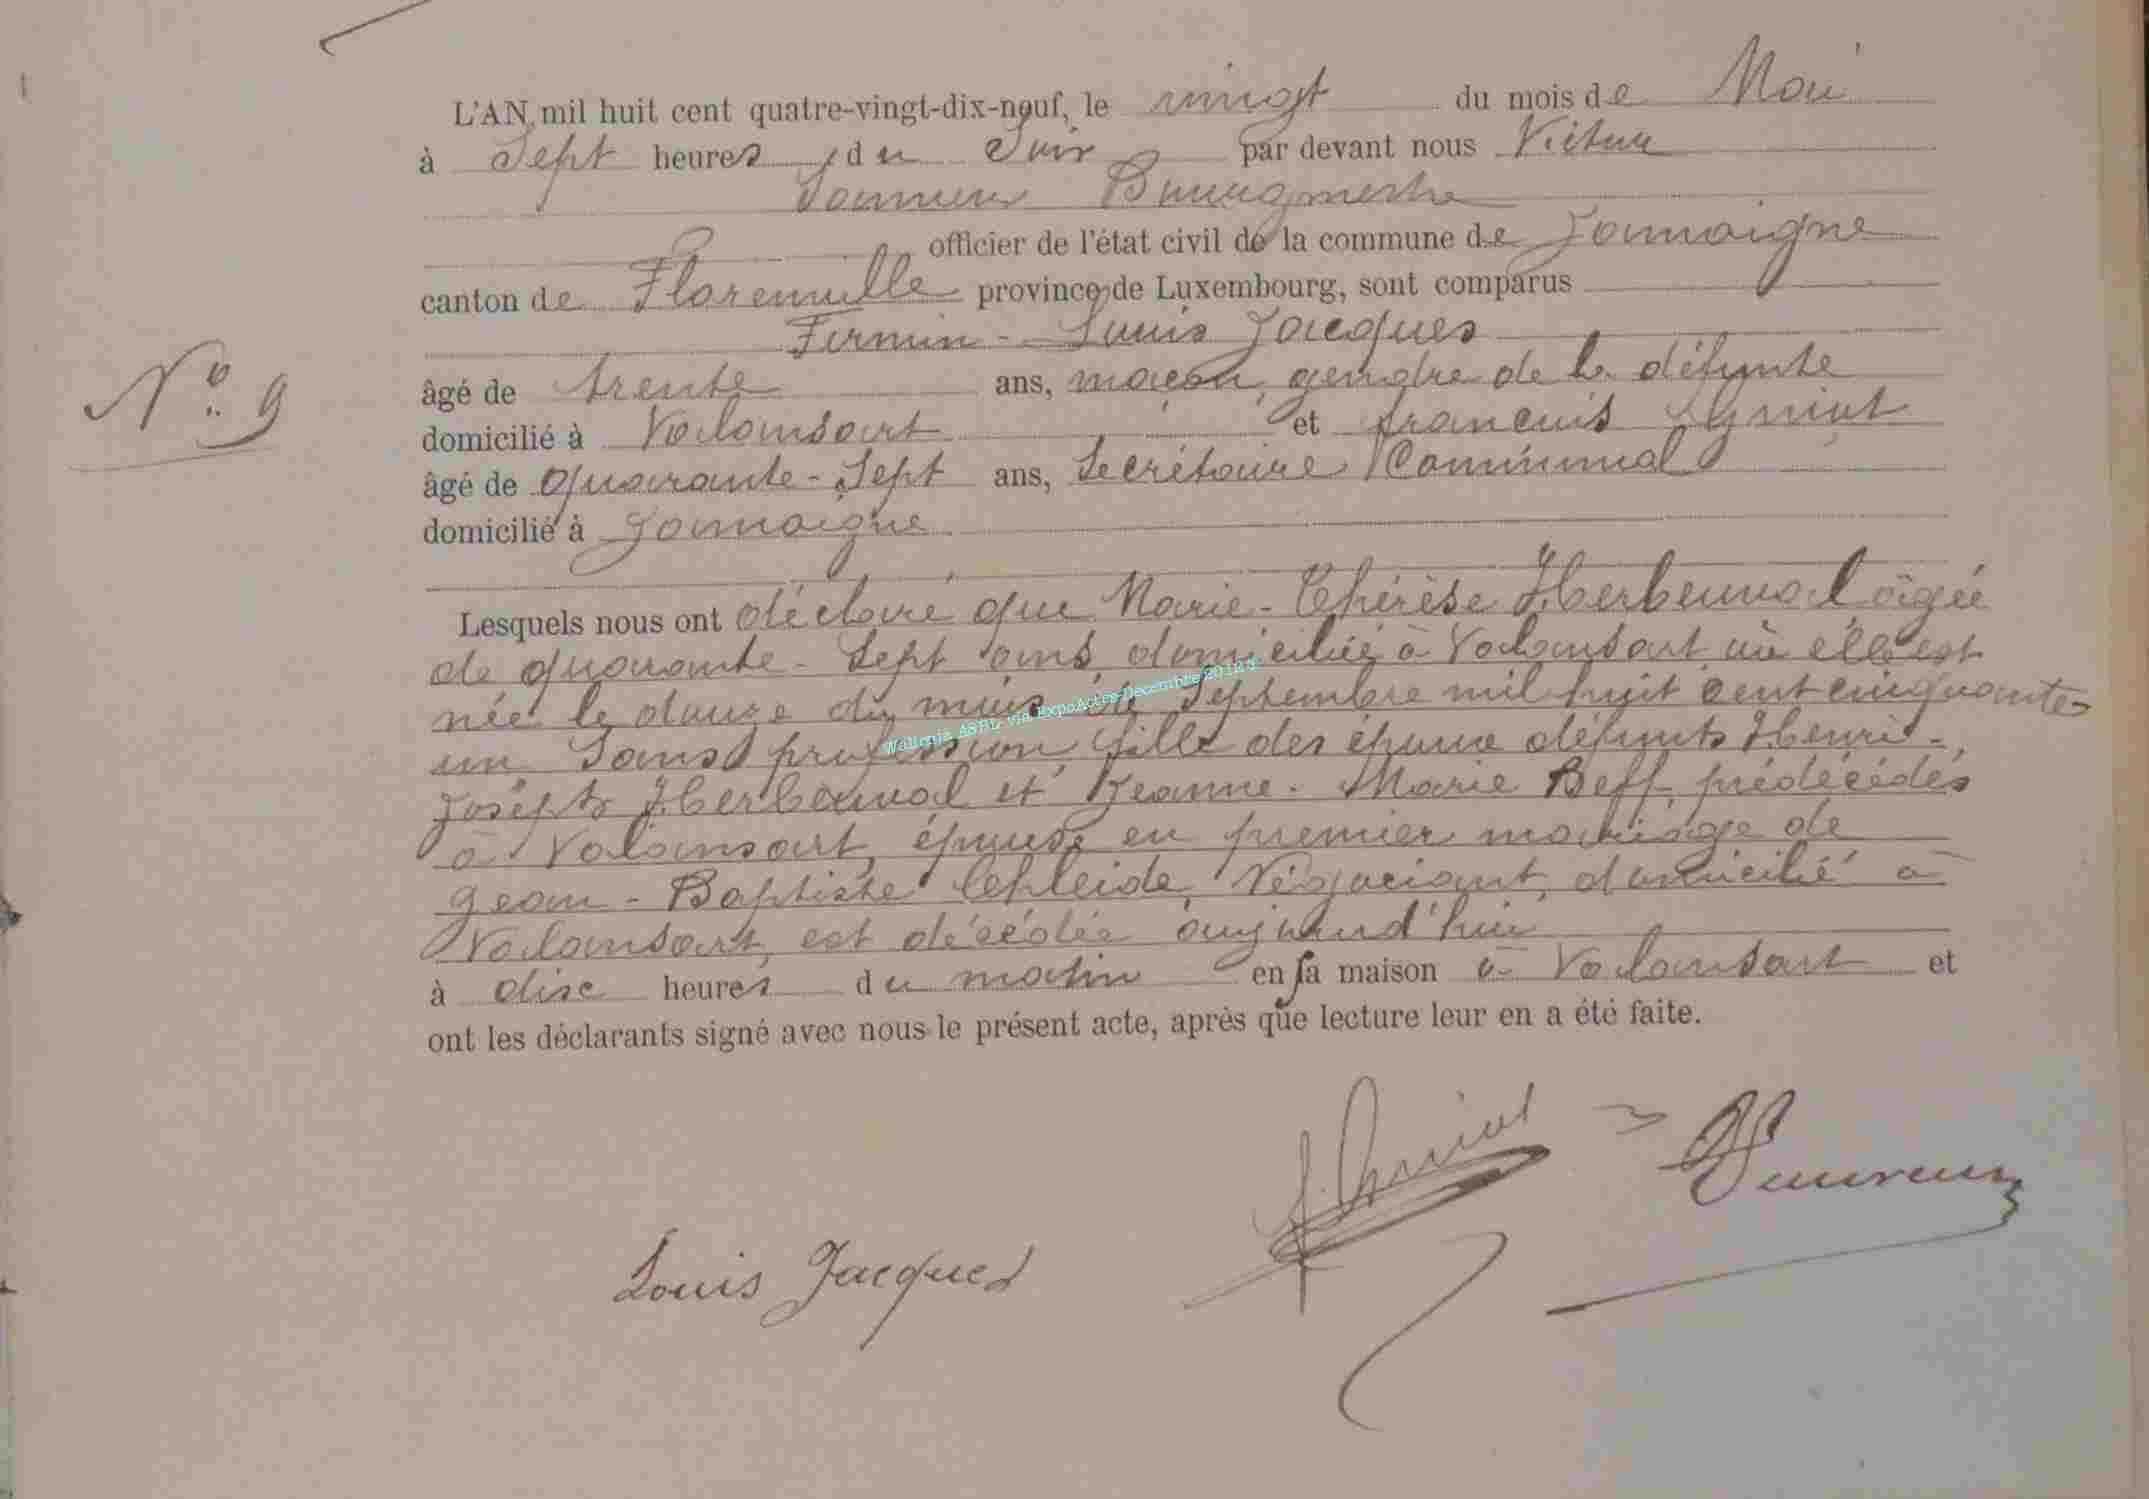 L'AN mil huit cent quatre-vingt-dix-neuf, le vingt du mois de Mai
à Sept heures du Soir par devant nous Victor
Bourgmestre
officier de l'état civil de la commune de Jamoigne
canton de Florenville province de Luxembourg, sont comparus
Firmin - Louis Jacques
N° 9
âgé de trente ans, maçon, gendre de la défunte
domicilié à Valansart et françois
âgé de quarante-Sept ans, Secrétaire Communal
domicilié à Jamoigne
Lesquels nous ont déclaré que Marie-Thérèse Herbeuval âgée
de quarante-Sept ans domiciliée à Valansart où elle est
née le douze du mois de Septembre mil huit cent cinquante-
un Sans profession, fille des époux défunts Henri-
Joseph Herbeuval et Jeanne-Marie Beff, prédécédés
à Valansart, épouse en premier mariage de
Jean-Baptiste Négociant, domicilié à
Valansart, est décédée aujourd'hui
à dix heures du matin en sa maison à Valansart et
ont les déclarants signé avec nous le présent acte, après que lecture leur en a été faite.
Louis Jacques
Wallonia ASBL via ExpoActes-Decembre 2012